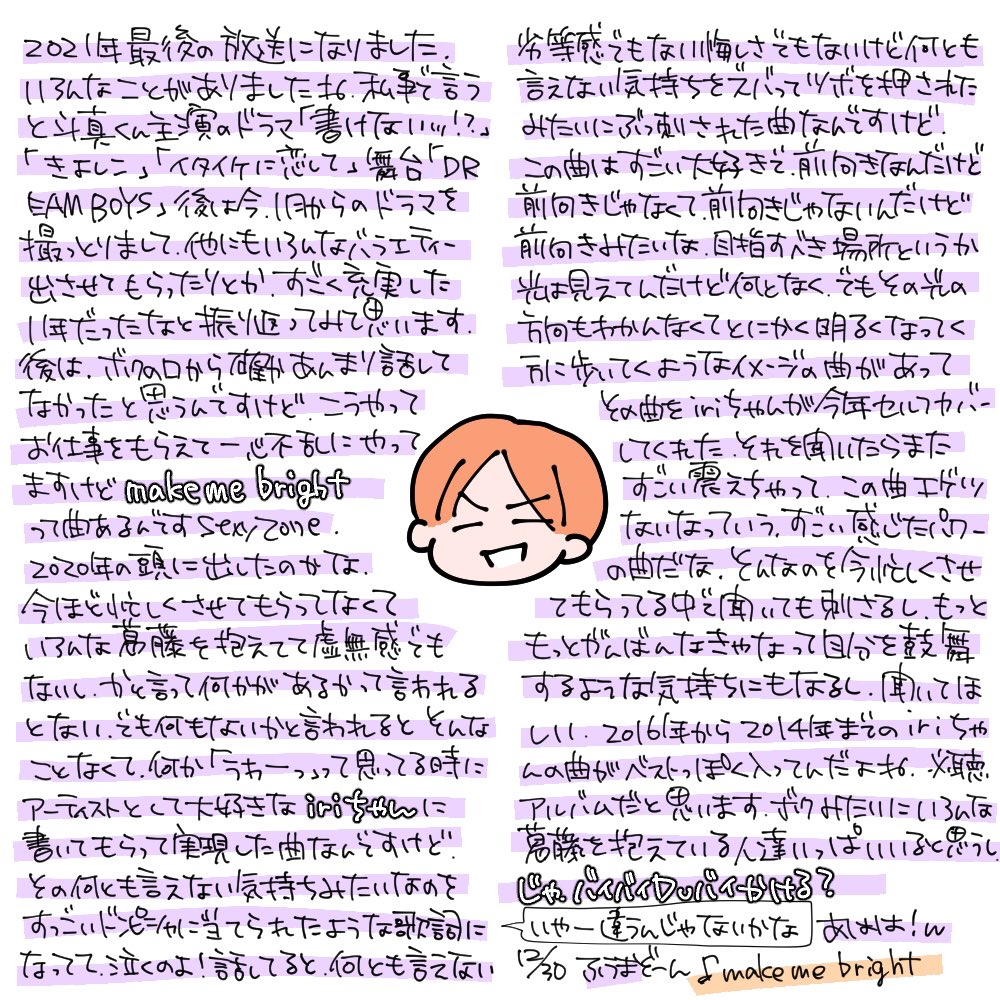 2021年最後の放送になりました.
いろんなことがありましたね. 私事で言う
と斗真くん主演のドラマ「書けないッ!?」
「きよしこ」「イタイケに恋して」舞台「DR
EAM BOYS」後は今、1月からのドラマを
撮っとりまして、他にもいろんなバラエティー
出させてもらったりとか、すごく充実した
1年だったなと振り返ってみて思います.
後は、ボクの口から確かあんまり話して
なかったと思うんですけど、こうやって
お仕事をもらえて一心不乱にやって
ますけど make me bright
って曲あるんです Sexy Zone.
2020年の頭に出したのかな、
今ほど忙しくさせてもらってなくて
いろんな葛藤を抱えてて虚無感でも
ないし、かと言って何かがあるかって言われる
とない、でも何もないかと言われるとそんな
ことなくて、何か「うわーっ」って思ってる時に
アーティストとして大好きな iriちゃんに
書いてもらって実現した曲なんですけど.
その何とも言えない気持ちみたいなのを
すっごいドンピシャに当てられたような歌詞に
なってて、泣くのよ!話してると、何とも言えない
劣等感でもない悔しさでもないけど何とも
言えない気持ちをズバってツボを押された
みたいにぶっ刺された曲なんですけど.
この曲はすごい大好きで、前向きなんだけど
前向きじゃなくて、前向きじゃないんだけど
前向きみたいな、目指すべき場所というか
光は見えてんだけど何となく、でもその光の
方向もわかんなくてとにかく明るくなってく
方に歩いてくようなイメージの曲があって
その曲を iriちゃんが今年セルフカバー
してくれた、それを聞いたらまた
すごい震えちゃって、この曲エゲツ
ないなっていう、すごい感じたパワー
の曲だな、そんなのを今忙しくさせ
てもらってる中で聞いても刺さるし、もっと
もっとがんばんなきゃなって自分を鼓舞
するような気持ちにもなるし、聞いてほ
しい. 2016年から2014年までの iriちゃ
んの曲がベストっぽく入ってんだよね. 必聴
アルバムだと思います. ボクみたいにいろんな
葛藤を抱えている人達いっぱいいると思うし
じゃ、バイバイDUバイかける?
いやー違うんじゃないかな あはは!w
12/30 ふうまどーん ♪make me bright